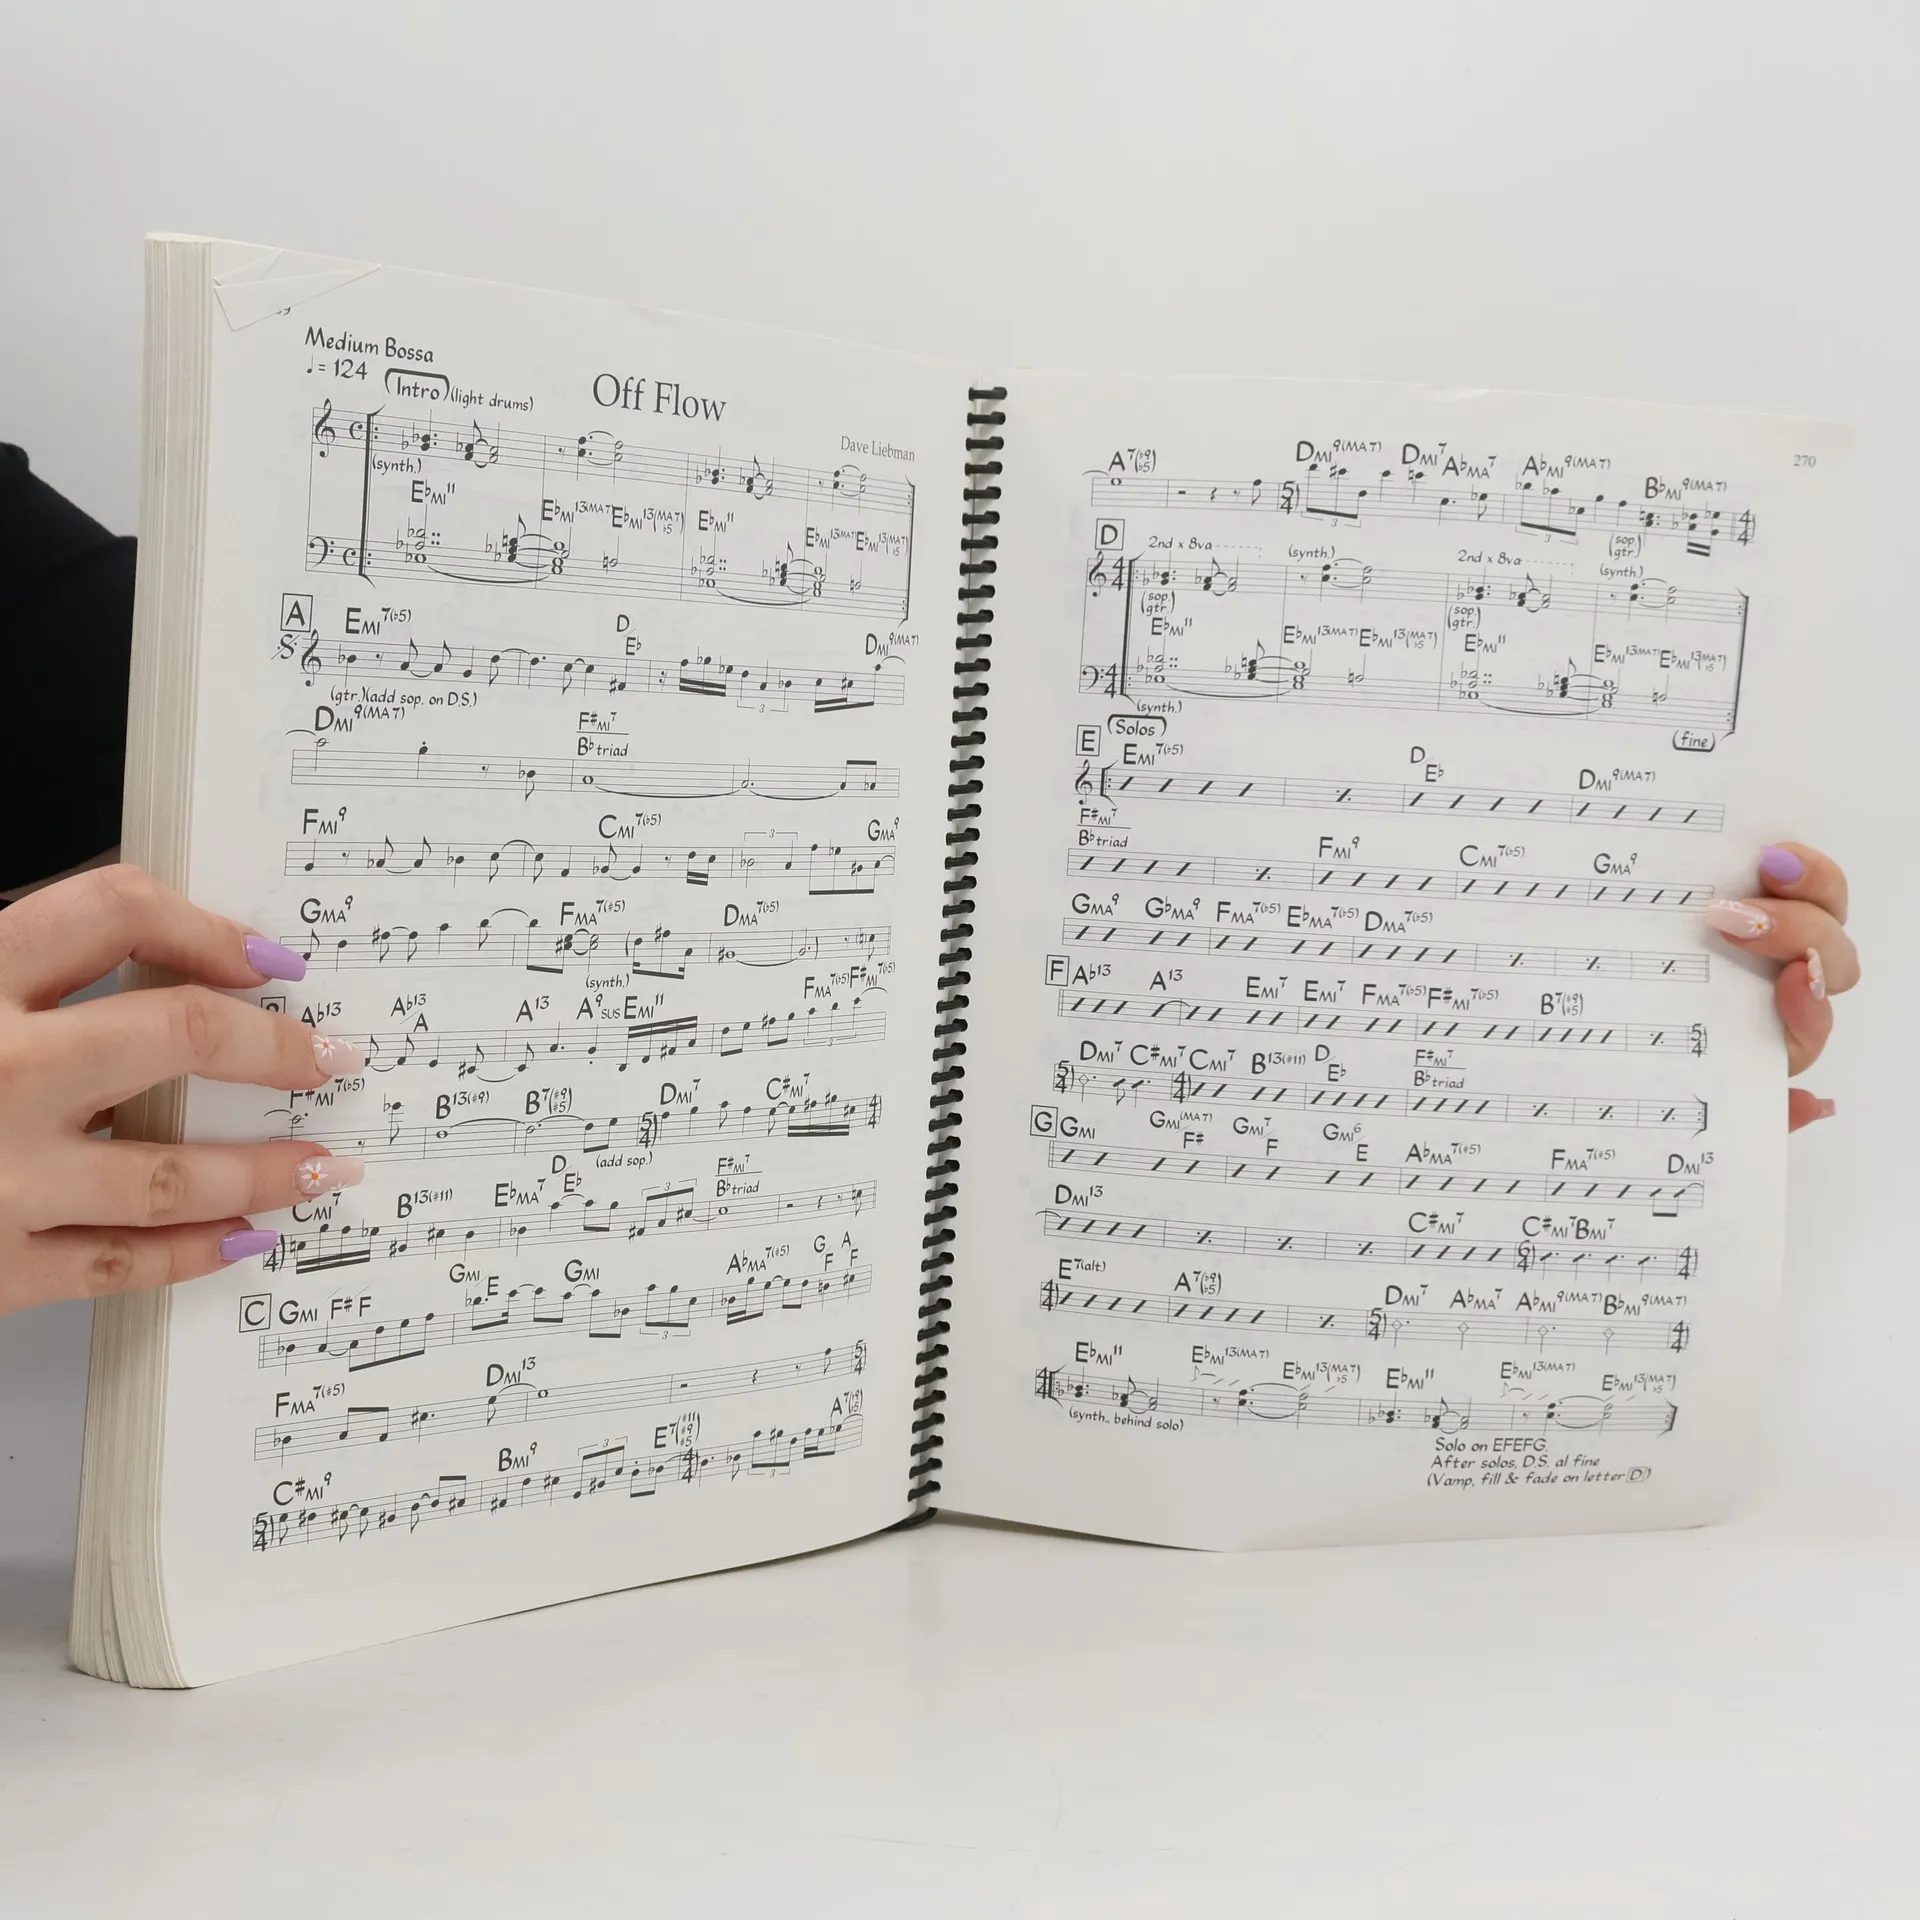 Medium Bossa
♩= 124
(Intro) (light drums)
Off Flow
Dave Liebman
(synth.)
E♭MI11 E♭MI13(MA7) E♭MI13(MA7 ♭5) E♭MI11 E♭MI13(MA7) E♭MI13(MA7 ♭5)
A EMI7(♭5) D/E♭ DMI9(MA7)
(gtr.)(add sop. on D.S.)
DMI9(MA7) F#MI7/B♭ triad
FMI9 CMI7(♭5) GMA9
3
GMA9 FMA7(#5) DMA7(♭5)
(synth.)
FMA7(♭5) F#MI7(♭5)
A♭13 A♭13/A A13 A9SUS EMI11
3
F#MI7(♭5) B13(#9) B7(#9 #5) DMI7 C#MI7
5/4 4/4
(add sop.)
CMI7 B13(#11) E♭MA7 D/E♭ F#MI7/B♭ triad
3
C GMI F# F GMI/E GMI A♭MA7(#5) G/F A/F
3
FMA7(#5) DMI13
5/4
C#MI9 BMI9 E7(#11 #9 #5) A7(♭9 ♭5)
5/4 3 4/4 3
270
A7(♭9 ♭5) DMI9(MA7) DMI7 A♭MA7 A♭MI9(MA7) B♭MI9(MA7)
5/4 3 3 4/4
(sop. gtr.)
D 2nd x 8va (synth.) 2nd x 8va (synth.)
(sop. gtr.) (sop. gtr.)
E♭MI11 E♭MI13(MA7) E♭MI13(MA7 ♭5) E♭MI11 E♭MI13(MA7) E♭MI13(MA7 ♭5)
(synth.)
(fine)
E (Solos)
EMI7(♭5) D/E♭ DMI9(MA7)
F#MI7/B♭ triad FMI9 CMI7(♭5) GMA9
GMA9 G♭MA9 FMA7(♭5) E♭MA7(♭5) DMA7(♭5)
F A♭13 A13 EMI7 EMI7 FMA7(♭5) F#MI7(♭5) B7(#9 #5)
5/4
DMI7 C#MI7 CMI7 B13(#11) D/E♭ F#MI7/B♭ triad
5/4 4/4
G GMI GMI(MA7)/F# GMI7/F GMI6/E A♭MA7(#5) FMA7(#5) DMI13
DMI13 C#MI7 C#MI7 BMI7
6/4 4/4
E7(alt.) A7(♭9 ♭5) DMI7 A♭MA7 A♭MI9(MA7) B♭MI9(MA7)
4/4 5/4 4/4
E♭MI11 E♭MI13(MA7) E♭MI13(MA7 ♭5) E♭MI11 E♭MI13(MA7) E♭MI13(MA7 ♭5)
4/4
(synth. behind solo)
Solo on EFEFG.
After solos, D.S. al fine
(Vamp, fill & fade on letter D)